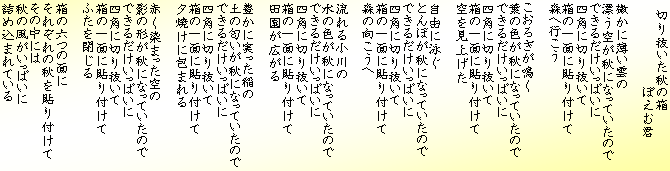 切り抜いた秋の箱
ぽえむ君
微かに薄い雲の
漂う空が秋になっていたので
できるだけいっぱいに
四角に切り抜いて
箱の一面に貼り付けて
森へ行こう
こおろぎが鳴く
葉の色が秋になっていたので
できるだけいっぱいに
四角に切り抜いて
箱の一面に貼り付けて
空を見上げた
自由に泳ぐ
とんぼが秋になっていたので
できるだけいっぱいに
四角に切り抜いて
箱の一面に貼り付けて
森の向こうへ
流れる小川の
水の色が秋になっていたので
できるだけいっぱいに
四角に切り抜いて
箱の一面に貼り付けて
田園が広がる
豊かに実った稲の
土の匂いが秋になっていたので
できるだけいっぱいに
四角に切り抜いて
箱の一面に貼り付けて
夕焼けに包まれる
赤く染まった空の
影の形が秋になっていたので
できるだけいっぱいに
四角に切り抜いて
箱の一面に貼り付けて
ふたを閉じる
箱の六つの面に
それぞれの秋を貼り付けて
その中には
秋の風がいっぱいに
詰め込まれている